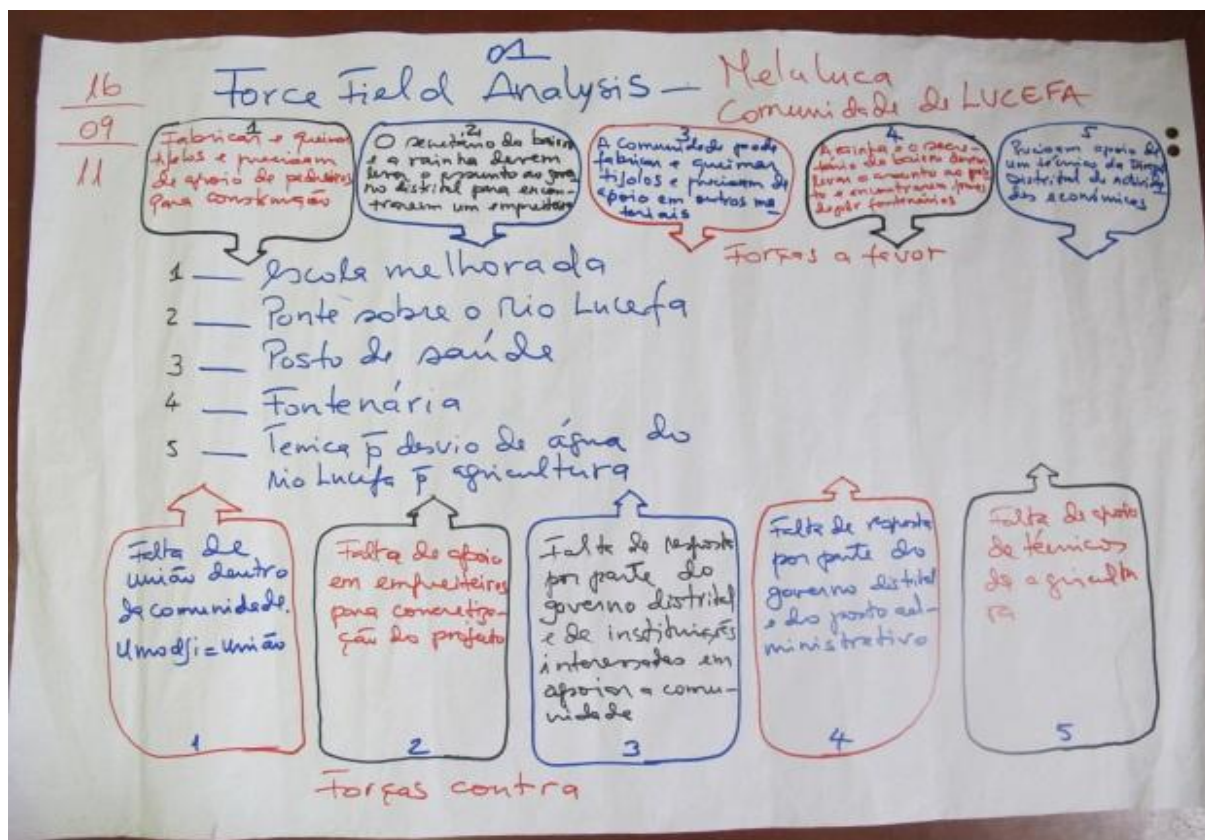 01
Force Field Analysis — Meluluca
Comunidade de LUCEFA
16
09
11
1
Fabricar e queimar
tijolos e precisam
de apoio de pedreiros
para construção
2
O secretário do bairro
e a rainha devem
levar o assunto ao gover
no distrital para encon-
trarem um empreiteiro
3
A comunidade pode
fabricar e queimar
tijolos e precisam de
apoio em outros ma
teriais
4
A rainha e o secre-
tário do bairro devem
levar o assunto ao pos
to e encontrarem
fontenários
5
Precisam apoio de
um técnico da
Distrital de Activida
des económicas
Forças a favor
1 — escola melhorada
2 — Ponte sobre o Rio Lucefa
3 — Posto de saúde
4 — Fontenária
5 — Temica p̄ desvio de água do
rio Lucefa p̄ agricultura
Falta de
união dentro
da comunidade.
Umodzi = união
1
Falta de apoio
em empreiteiros
para concretiza-
ção do projeto
2
Falta de resposta
por parte do
governo distrital
e de instituições
interessadas em
apoiar a comu-
nidade
3
Falta de resposta
por parte do
governo distrital
e do posto ad-
ministrativo
4
Falta de apoio
de técnicos
da agricultu
ra
5
Forças contra